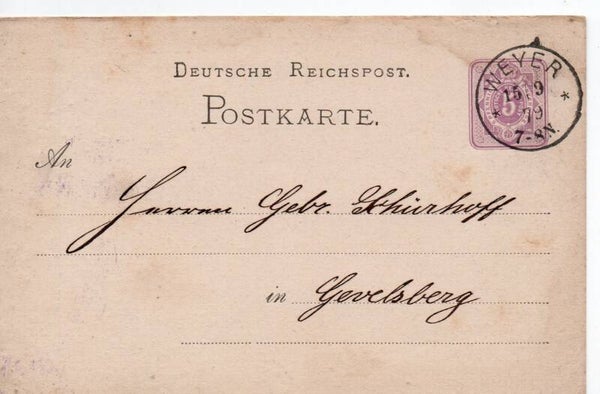 DEUTSCHE REICHSPOST.
POSTKARTE.
WEYER
5
15 9
79
7-8N.
An
Herren Gebr. Schürhoff
in Gevelsberg